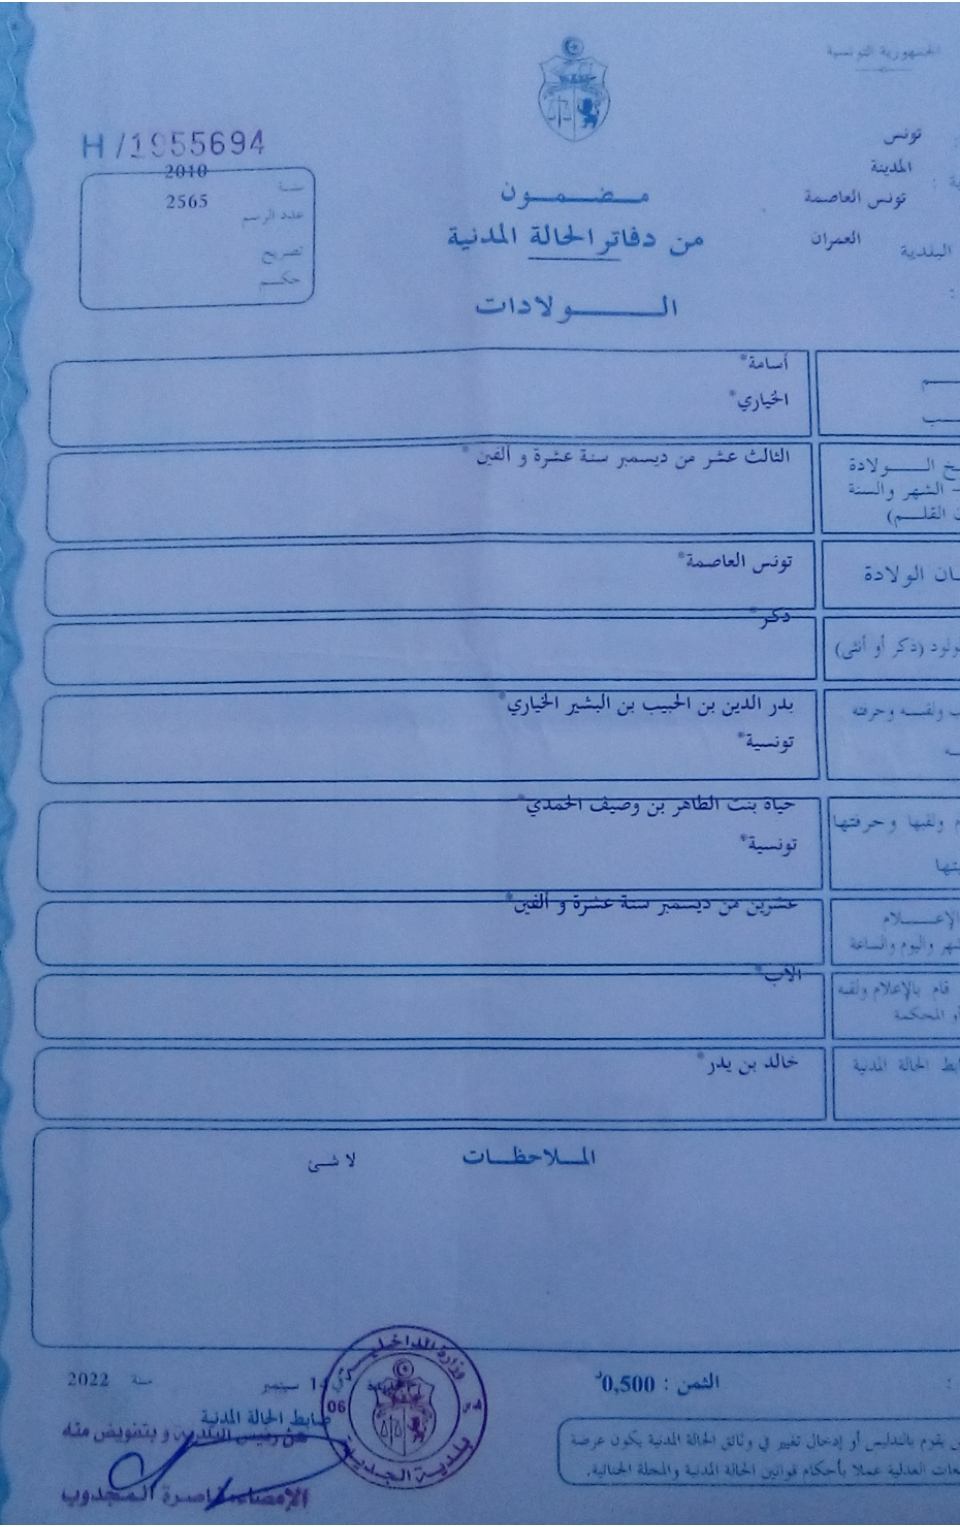 الجمهورية التونسية
تونس
المدينة
تونس العاصمة
البلدية العمران
H/1955694
سنة 2010
عدد الرسم 2565
تصريح
حكم
مضمون
من دفاتر الحالة المدنية
الولادات
أسامة*
الخياري*
الولادة الثالث عشر من ديسمبر سنة عشرة و ألفين*
- الشهر والسنة
القلم)
الولادة تونس العاصمة*
(ذكر أو أنثى) ذكر*
ولقبه وحرفته بدر الدين بن الحبيب بن البشير الخياري*
تونسية*
ولقبها وحرفتها حياة بنت الطاهر بن وصيف الحمدي*
تونسية*
الإعلام عشرين من ديسمبر سنة عشرة و ألفين*
واليوم والساعة
قام بالإعلام ولقبه الأب*
أو المحكمة
الحالة المدنية خالد بن يدر*
الملاحظات لا شئ
الثمن : 0,500د
14 سبتمبر سنة 2022
ضابط الحالة المدنية
عن رئيس البلدية و بتفويض منه
الإمضاء: ناصرة المجذوب
وزارة الداخلية
06
بلدية الجديدة
يقوم بالتدليس أو إدخال تغيير في وثائق الحالة المدنية يكون عرضة
العدلية عملا بأحكام قوانين الحالة المدنية والمجلة الجنائية.